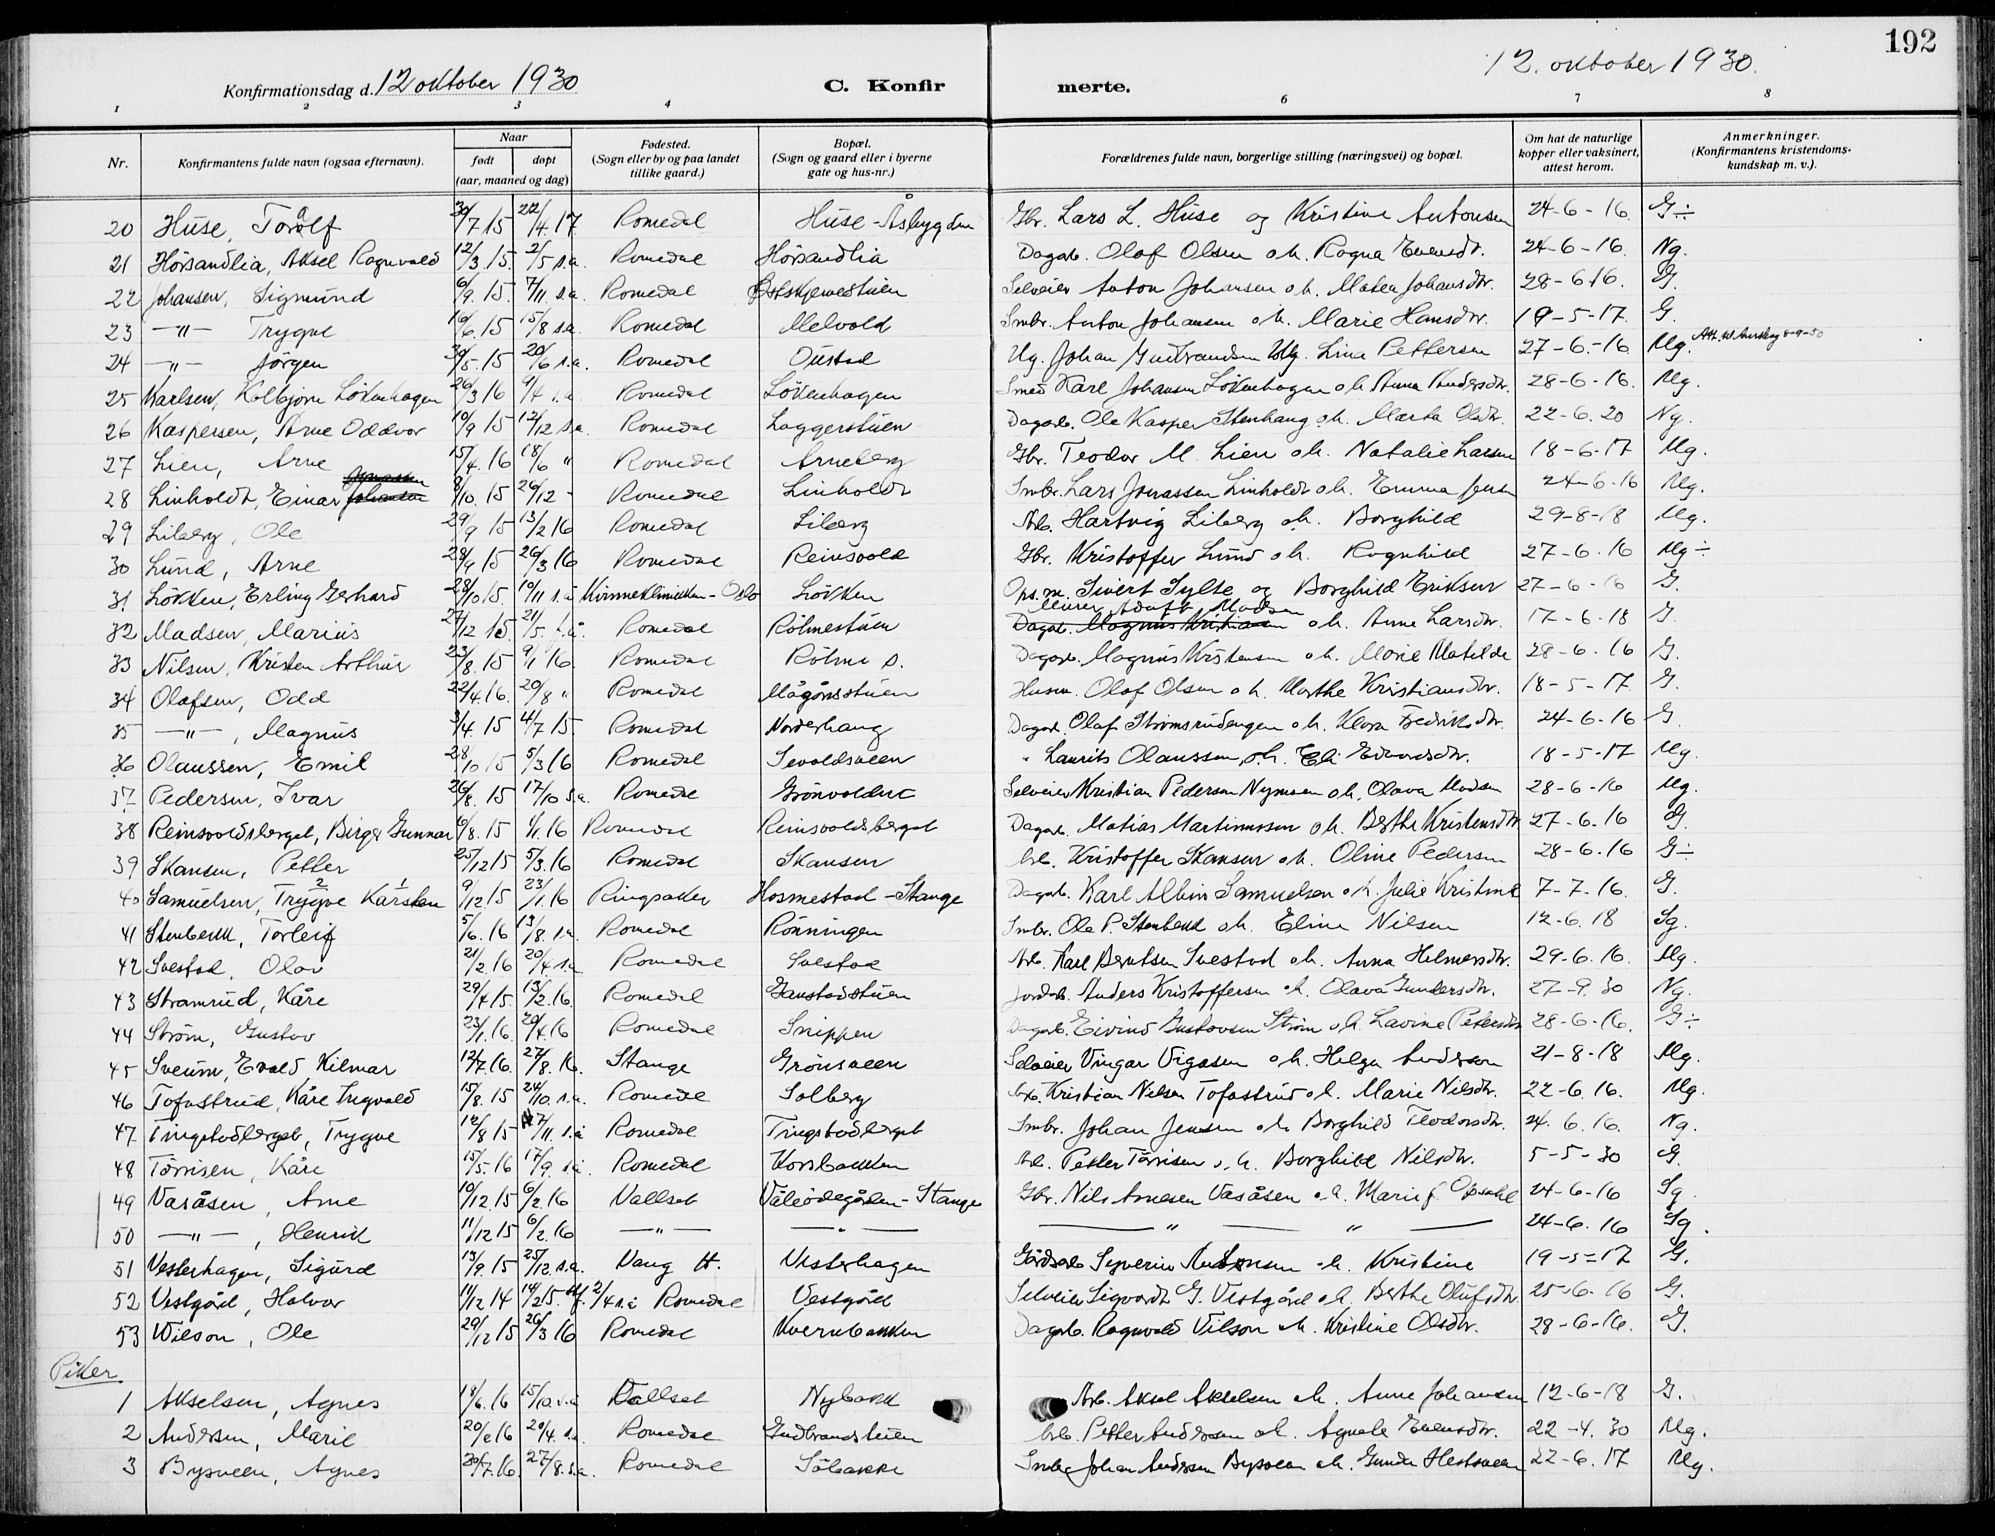 192
Konfirmationsdag d. 12 oktober 1930 C. Konfirmerte. 12. oktober 1930.
1 2 3 4 6 7 8
Nr. Konfirmantens fulde navn (ogsaa efternavn). Naar født døpt (aar, maaned og dag) Fødested. (Sogn eller by og paa landet tillike gaard.) Bopæl. (Sogn og gaard eller i byerne gate og hus-nr.) Forældrenes fulde navn, borgerlige stilling (næringsvei) og bopæl. Om hat de naturlige kopper eller vaksinert, attest herom. Anmerkninger. (Konfirmantens kristendoms-kundskap m. v.).
20 Huse, Toralf 30/7 15 22/4 17 Romedal Huse - Åsbygden Gbr. Lars L. Huse og Kristine Antonsen 24-6-16. G÷
21 Hörsandlia, Aksel Ragnvald 12/3 15. 2/5 s.a. Romedal Hörsandlia Dagarb. Olof Olsen o.h. Ragna Evensdt. 24-6-16. Ng.
22 Johansen, Sigmund 6/9. 15. 7/11 s.a. Romedal Selveier Anton Johansen o.h. Matea Johansdtr. 28-6 16. G.
23 -"- Trygve 16/6 15 15/8 s.a. Romedal Melvold Smbr. Anton Johansen o.h. Marie Hansdtr. 19-5-17. G.
24 -"- Jörgen 30/5. 15 20/6 s.a. Romedal Oustad Ug. Johan Gudbrandsen Lina Pettersen 27-6.-16. Mg.
25 Karlsen, Kolbjørn Lökenhagen 26/3 16 9/4 s.a. Romedal Lökenhagen Smed Karl Johansen Lökenhagen o.h. Anna Andersdtr. 28-6-16. Mg.
26 Kaspersen, Arne Oddvar 10/9 15 12/12 s.a. Romedal Laggerstuen Dagarb. Ole Kasper Stenhaug o.h. Marta Olsdtr. 22-6.20 Ng.
27 Lien, Arne 15/4. 16 18/6 " Romedal Arneberg Gbr. Teodor M. Lien o.h. Natalie Larsen 18-6-17 Mg.
28 Linholdt, Einar 8/10. 15 26/12 - Romedal Linholdt Smbr. Lars Jonassen Linholdt o.h. Emma Jensen 24-6-16 Mg.
29 Liberg, Ole 29/9 15 13/2 16 Romedal Liberg Arb. Hartvig Liberg o.h. Borghild 29-8-18 Mg.
30 Lund, Arne 28/9 15 26/3 16 Romedal Reinsvold Gbr. Kristoffer Lund o.h. Ragnhild 27-6.16 Mg÷
31 Lökken, Erling Gerhard 28/10 15. 10/11 s.a. Kvinneklinikken - Oslo Lökken Ops.m. Sivert Sylte og Borghild Eriksen 27-6-16 G.
Murer Adolf Madsen
32 Madsen, Marius 27/12 15 21/5. Romedal Rölmestuen Dagarb. Magnus Kristiansen o.h. Anne Larsdtr. 17-6-18 G.
33 Nilsen, Kristen Arthur 23/8. 15 9/1 16. Romedal Rölme s. Dagarb. Magnus Kristensen o.h. Marie Matilde 28-6.16 G.
34 Olafsen, Odd 22/4 16. 20/8 " Romedal Mågårdsstuen Husm. Olaf Olsen o.h. Marthe Kristiansdtr. 18-5-17. G.
35 -"-, Magnus 3/4. 15 4/7 15. Romedal Norderhaug Dagarb. Olaf Strömsrudengen o.h. Klara Fredriksdtr. 24-6-16 G.
36 Olaussen, Emil 28/10 15 5/3 16 Romedal Sevaldsveen " Laurits Olaussen, o.h. Eli Edvardsdtr. 18-5-17 Mg.
37 Pedersen, Ivar 26/8. 15 17/10 s.a. Romedal Selveier Kristian Pedersen Nymoen o.h. Olava Madsen 28-6-16 Mg.
38 Reinsvoldsberget, Birger Gunnar 6/8. 15 1/1. 16 Romedal Reinsvoldsberget Dagarb. Matias Martinussen o.h. Berthe Kristensdtr 27-6.16 G.
39 Skansen, Petter 25/12 15 5/3. 16 Romedal Skansen Arb. Kristoffer Skansen o.h. Oline Pedersen 28-6.16 G÷
40 Samuelsen, Trygve Karsten 9/12 15 23/1. 16 Ringsaker Hosmestad - Stange Dagarb. Karl Albin Samuelsen o.h. Julie Kristine 7-7.16. G.
41 Stenbekk, Torleif 5/6. 16 13/8. s.a. Romedal Rönningen Smbr. Ole P. Stenbekk o.h. Eline Nilsen 12-6.18 Sg.
42 Svestad, Olav 21/2. 16 20/4 s.a Romedal Svestad Arb. Karl Berntsen Svestad o.h. Anna Helmersdtr. 29-6.16. Mg.
43 Stramrud, Kåre 29/4 15. 13/2. 16. Romedal Gaustadstuen Jordarb. Anders Kristoffersen o.h. Olava Gundersdtr. 27-9.30 Ng.
44 Ström, Gustav 23/1. 16. 20/4 16 Romedal Snippen Dagarb. Eivind Gustavsen Ström o.h. Lavine Petersdtr 28-6-16. G÷
45 Sveum, Evald Hilmar 12/7. 16. 27/8. 16. Stange Grönsveen Selveier Vingar Vigasen o.h. Helga Andersen 21-8-18 Mg.
46 Tofastrud, Kåre Ingvald 15/8. 15 24/10. s.a. Romedal Solberg Arb. Kristian Nilsen Tofastrud o.h. Marie Nilsdtr. 22-6.16. Mg.
47 Tingstadberget, Trygve 12/8 15 27/11. s.a Romedal Tingstadberget Smbr. Johan Jensen o.h. Borghild Teodorsdtr. 24.6.16. Ng.
48 Törrisen, Kåre 15/5. 16 17/9. s.a. Romedal Korsbakken Arb. Petter Törrisen o.h. Borghild Nilsdtr. 5-5-30 G.
49 Vasåsen, Arne 10/12. 15 6/2. 16 Vallset Våleödegården - Stange Gbr. Nils Arnesen Vasåsen o.h. Marie f. Opsahl 24-6-16 Sg.
50 -"-, Henrik 11/12 15 6/2. 16 -"- -"- " " 24-6.16 Sg.
51 Vesterhagen, Sigurd 13/9. 15 25/12. s.a. Vang H. Vesterhagen Gårdsarb. Syverin Antonsen o.h. Kristine 19-5-17 G.
52 Vestgård, Halvor 11/12 14 14/2 15. 2/4 s.a Romedal Vestgård Selveier Sigvardt G. Vestgård o.h. Berthe Olufsdtr. 25-6.16 G.
53 Wilson, Ole 29/12 15 26/3 16 Romedal Kvernbakken Dagarb. Ragnvald Vilson o.h. Kristine Olsdtr. 28-6-16. G.
Piker
1 Akselsen, Agnes 18/6. 16 15/10. s.a Vallset Nybakk Arb. Aksel Akselsen o.h. Anne Johansen 12-6-18 G.
2 Andersen, Marie 20/2 16 20/4. s.a. Romedal Gudbrandstuen Arb. Petter Andersen o.h. Agnete Evensdtr. 22-4.30 Mg.
3 Bysveen, Agnes 20/7. 16. 27/8. s.a. Romedal Söbakke Smbr. Johan Andersen Bysveen o.h. Gunda Hestsveen 22-6.17 Mg.